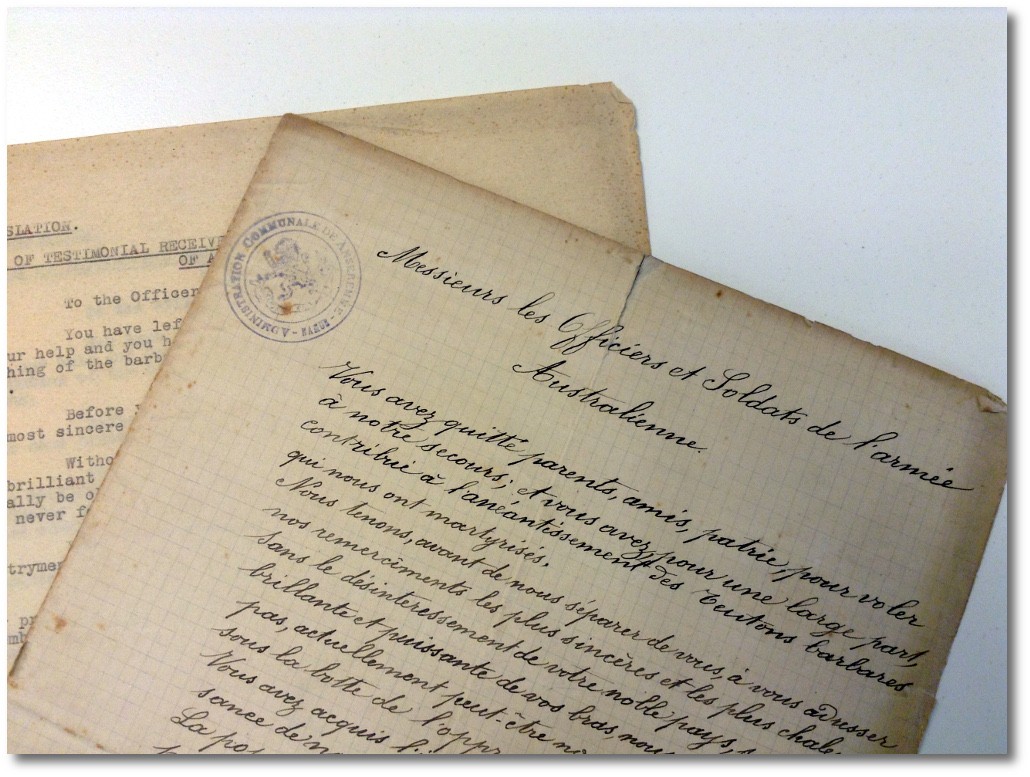 SLATION.
OF TESTIMONIAL RECEIV
OF A
To the Officer
You have lef
ur help and you h
hing of the barb
Before
most sincere
Witho
brilliant
ally be o
never f
tryme
pr
mb
ADMINISTRATION COMMUNALE DE
Messieurs les Officiers et Soldats de l'armée
Australienne.
Vous avez quitté parents, amis, patrie, pour voler
à notre secours; et vous avez, pour une large part,
contribué à l'anéantissement des teutons barbares
qui nous ont martyrisés.
Nous tenons, avant de nous séparer de vous, à vous adresser
nos remercîments les plus sincères et les plus chale
Sans le désintéressement de votre noble pays, s
brillante et puissante de vos bras, nou
pas, actuellement peut-être n
sous la botte de l'oppr
Vous avez acquis l
sance de n
La po